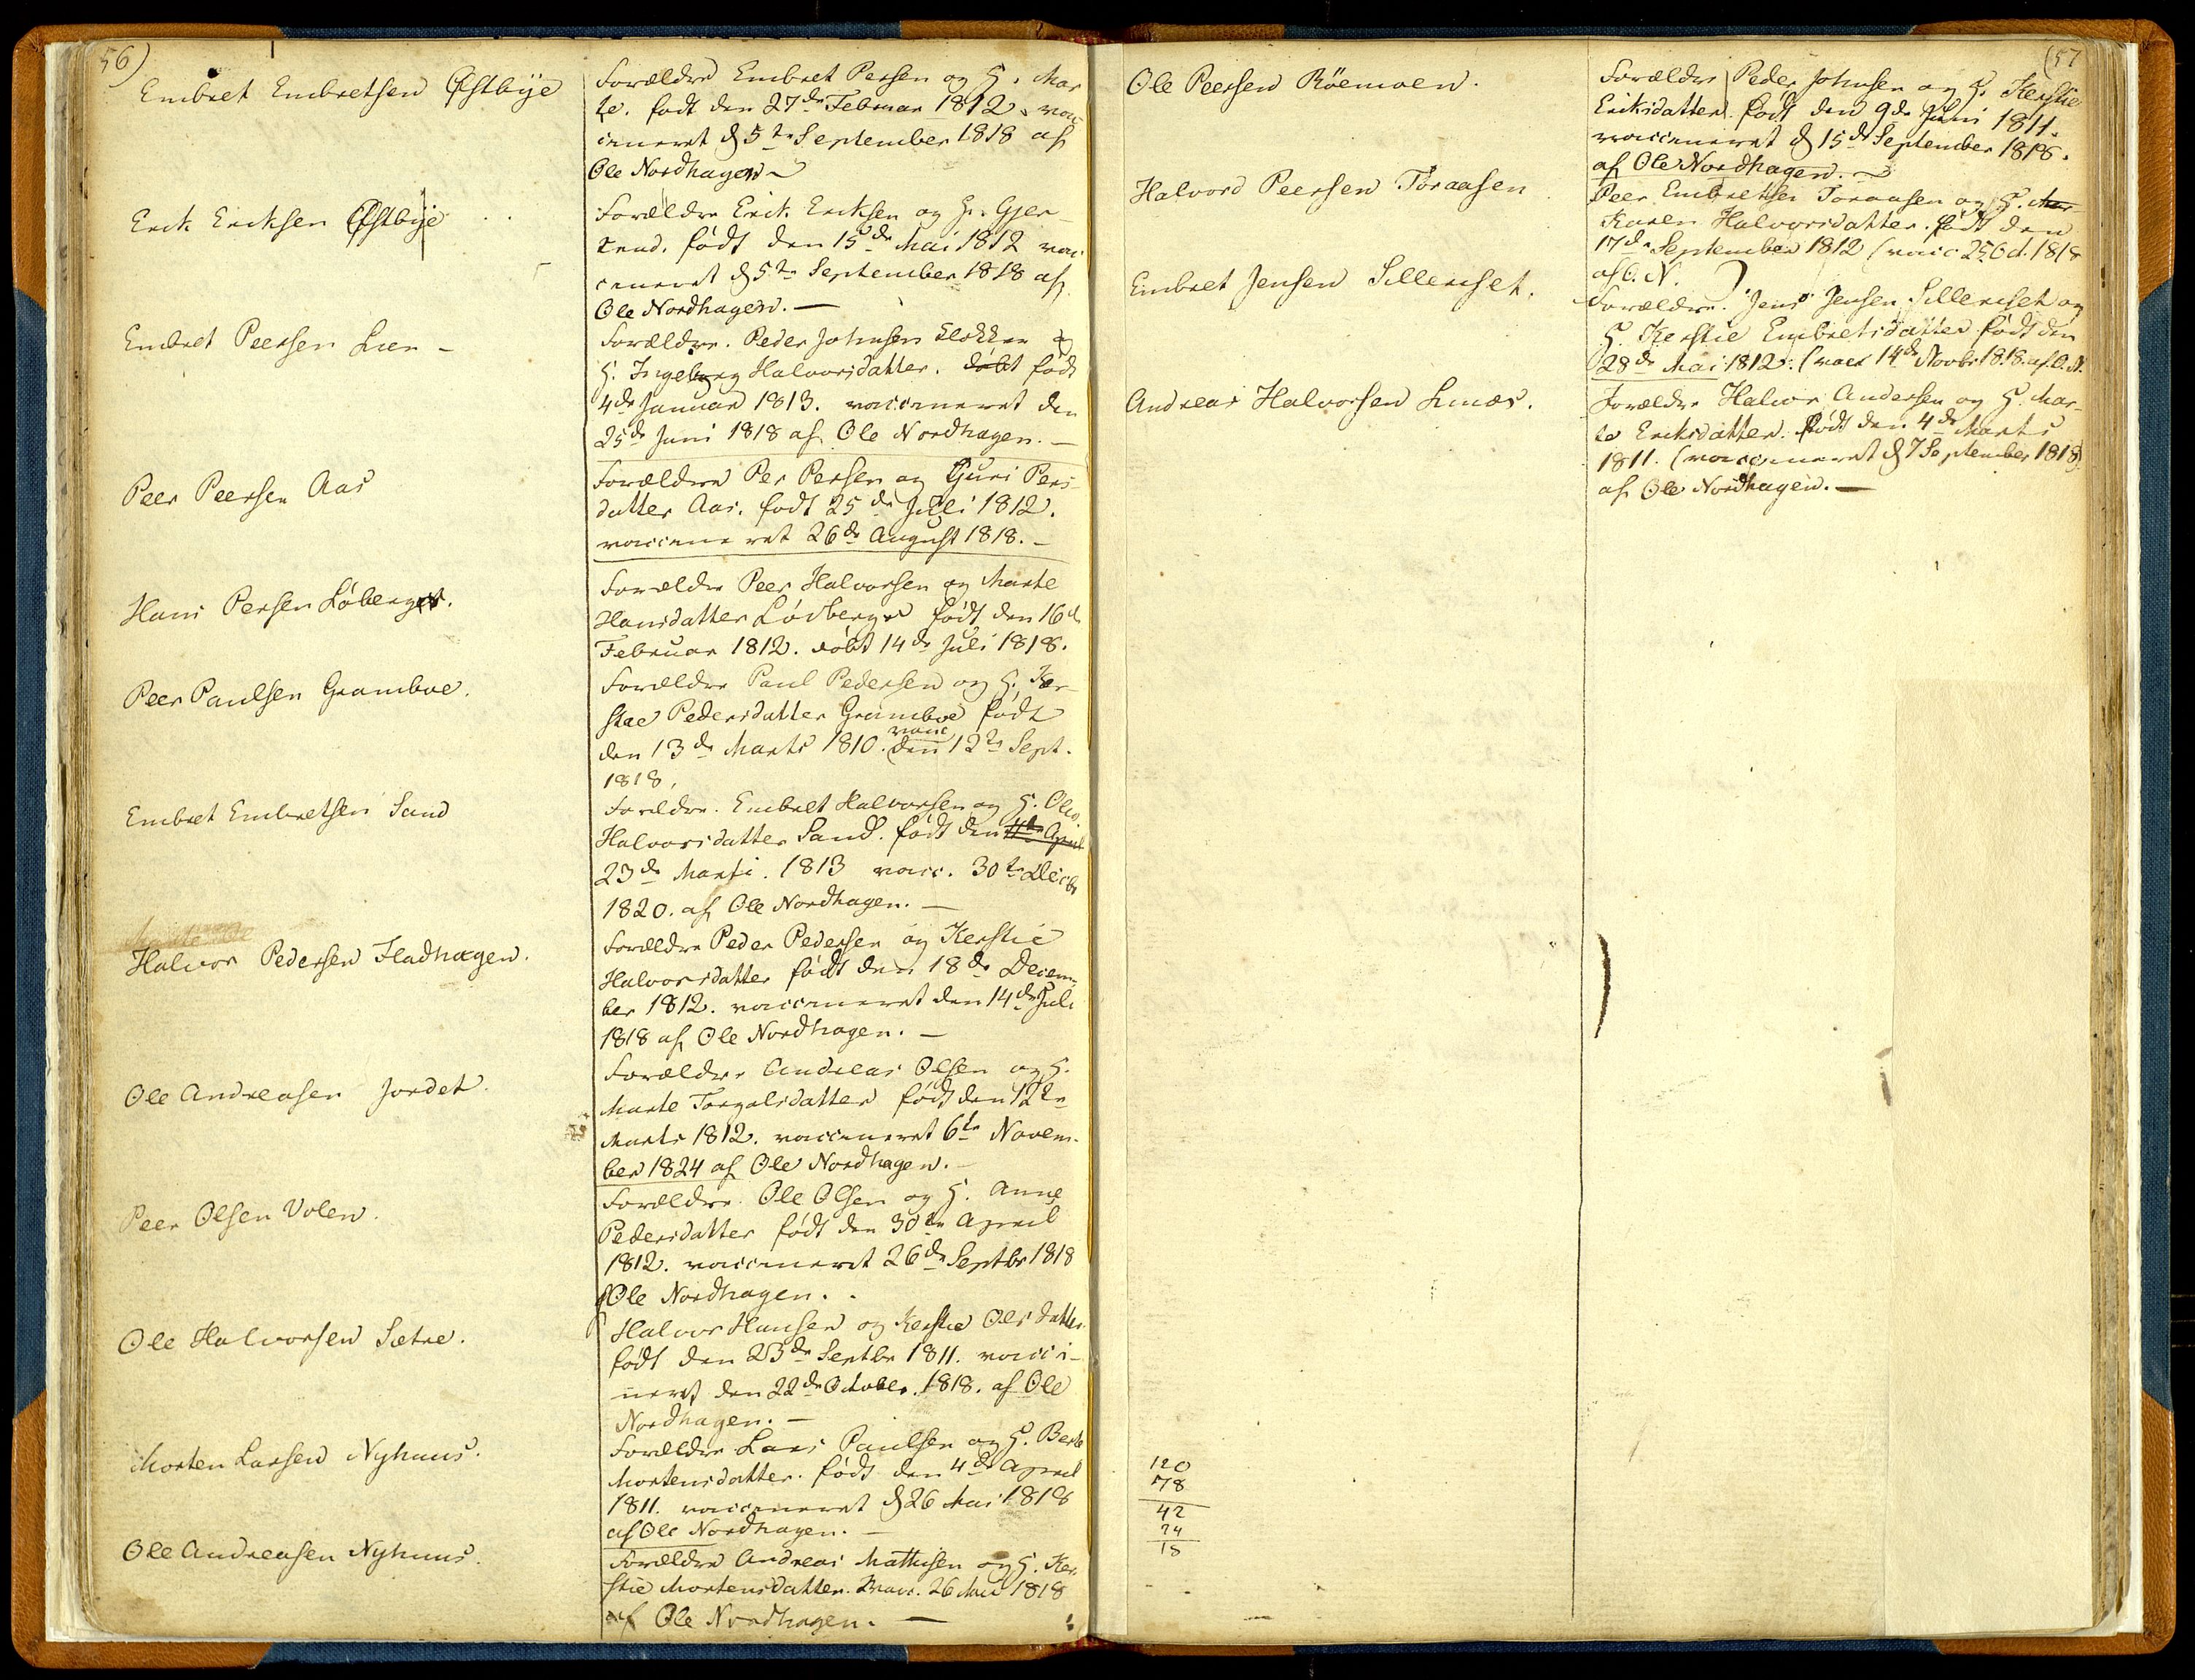 56)
Embret Embretsen Østbye
Forældre Embret Persen og H. Mar
te. født den 27de Februar 1812. vac
cineret d 5te September 1818 af
Ole Nordhagen
Erik Eriksen Østbye
Forældre Erik Eriksen og H. Gjer
trud. født den 15de Mai 1812 vac
cineret d 5te September 1818 af
Ole Nordhagen. —
Embret Peersen Lien –
Forældre. Peder Johnsen Klokker og
H. Ingeborg Halvorsdatter. døbt født
4de Januar 1813. vaccineret den
25de Juni 1818 af Ole Nordhagen. —
Peer Peersen Aas
Forældre Per Persen og Guri Pers
datter Aas. født 25de Juli 1812.
vaccineret 26de August 1818. –
Hans Persen Löberget.
Forældre Peer Halvorsen og Marte
Hansdatter Lövberget født den 16de
Februar 1812. döbt 14de Juli 1818.
Peer Paulsen Gramboe.
Forældre Paul Pedersen og H. Ker
stie Pedersdatter Gramboe født
den 13de Marts 1810. vacc den 12te Sept.
1818,
Embret Embretsen Sand
Forældre. Embret Halvorsen og H. Olea
Halvorsdatter Sand. født den 4de April
23de Marti. 1813 vacc. 30te Decbr
1820. af Ole Nordhagen. —
Halvor Pedersen Fladhagen.
Forældre Peder Pedersen og Kerstie
Halvorsdatter født den 18de Decem
ber 1812. vaccineret den 14de Juli
1818 af Ole Nordhagen. —
Ole Andreasen Jordet.
Forældre Andreas Olsen og H.
Marte Torgalsdatter født den 12te
Marts 1812. vaccineret 6te Novem-
ber 1824 af Ole Nordhagen. –
Peer Olsen Volen.
Forældre. Ole Olsen og H. Anne
Pedersdatter født den 30te April
1812. vaccineret 26de Septbr 1818
Ole Nordhagen. .
Ole Halvorsen Sætre.
Halvor Hansen og Kerstie Olsdatter
født den 23de Septbr 1811. vacci-
neret den 22de October. 1818. af Ole
Nordhagen. —
Morten Larsen Nyhuus.
Forældre Lars Paulsen og H. Berte
Mortensdatter. født den 4de April
1811. vaccineret d 26 Mai 1818
af Ole Nordhagen. —
Ole Andreasen Nyhuus.
Forældre Andreas Mathisen og H. Ker
stie Mortensdatter. vacc. 26 Mai 1818
af Ole Nordhagen. —
(57
Ole Peersen Röemoen.
Forældre Peder Johnsen og H. Kerstie
Eriksdatter. født den 9de Juni 1811.
vaccineret d 15de September 1818.
af Ole Nordhagen. —
Halvord Peersen Toraasen
Peer Embretsen Toraasen og H. Mar-
Karen Halvorsdatter. født den
17de September 1812 (vacc 25 Oct. 1818
af O. N. )
Embret Jensen Sillerset.
Forældre. Jens Jensen Sillerset og
H. Kerstie Embretsdatter født den
28de Mai 1812: (vacc 14de Novbr 1818. af O. N.
Andreas Halvorsen Linæs.
Forældre Halvor Andersen og H. Mar-
te Eriksdatter. født den 4de Marts
1811. (vaccineret d 7 September 1818)
af Ole Nordhagen. —
120
78
42
24
18